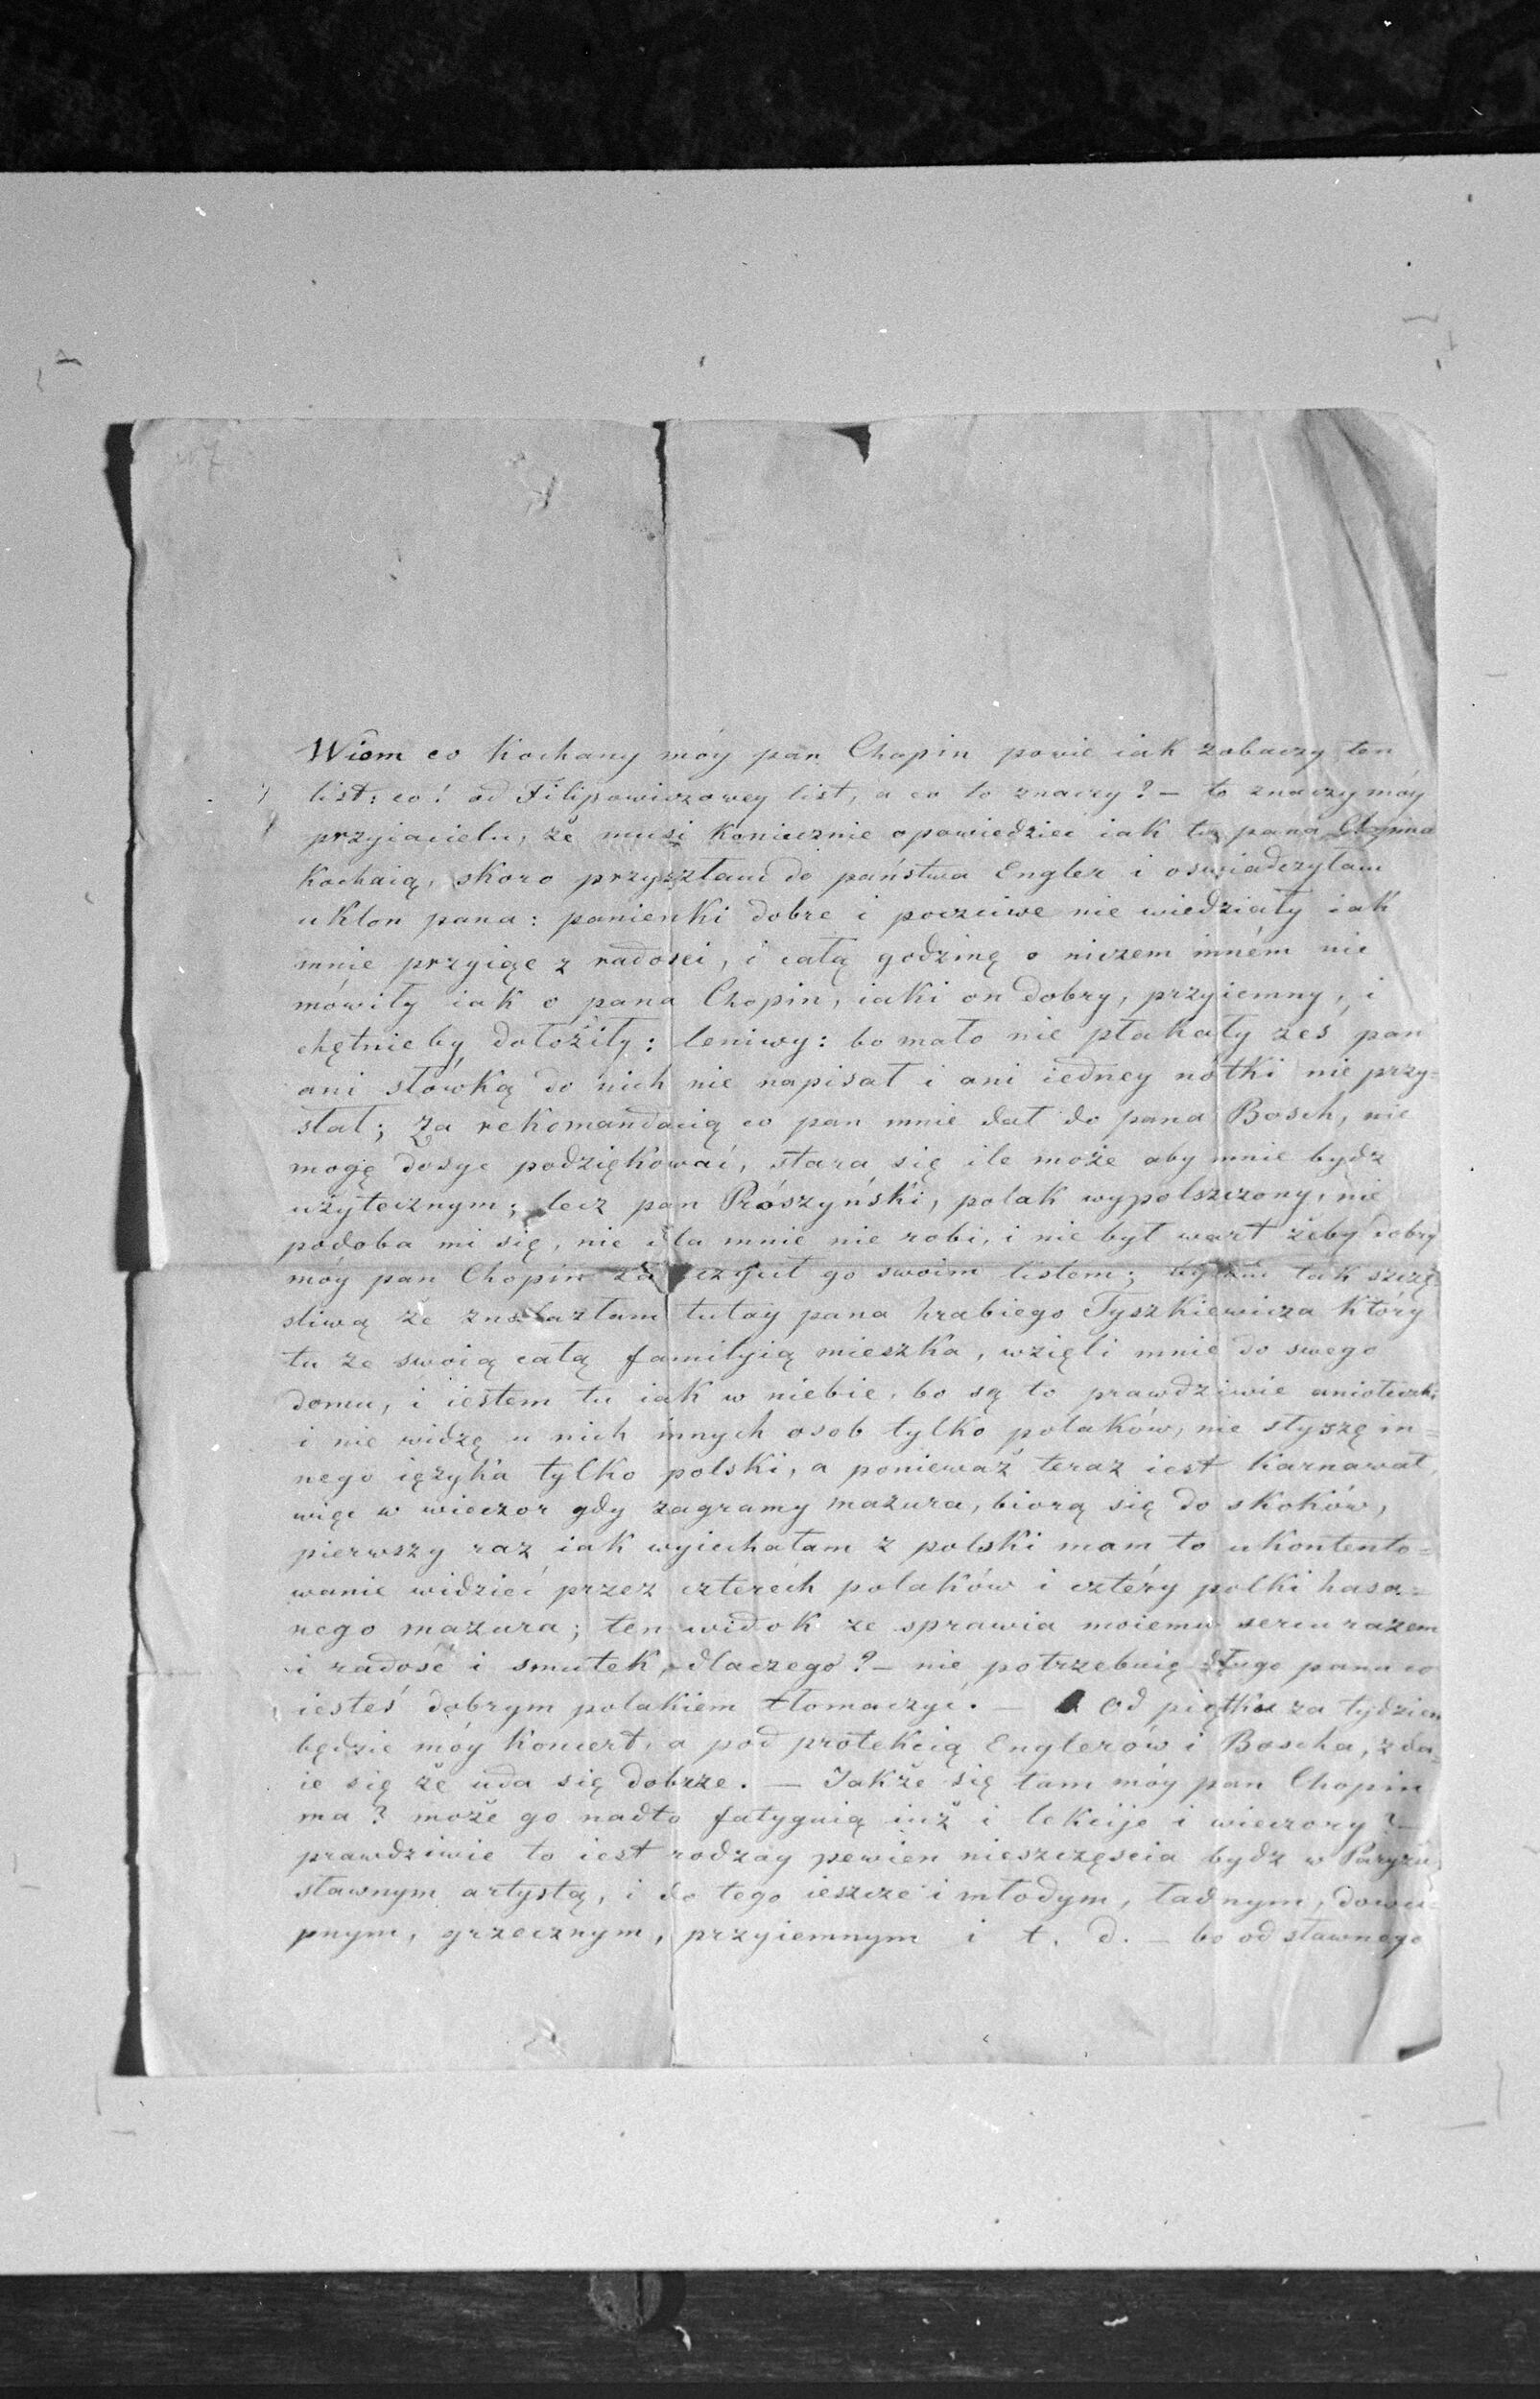 Wiem co Kochany móy pan Chopin powie iak zobaczy ten
list: co! od Filipowiczowey list, a co to znaczy? — to znaczy móy
przyiacielu, że musi Koniecznie opowiedzieć iak tu pana Chopina
Kochaią, skoro przyszłam do państwa Engler i oswiadczyłam
ukłon pana: panienki dobre i poczciwe nie wiedziały iak
mnie przyiąc z radosci, i całą godzinę o niczem inném nie
mówiły iak o pana Chopin, iaki on dobry, przyiemny, i
chętnieby dołożiły: leniwy: bo mało nie płakały żeś pan
ani słówką do nich nie napisał i ani iedney nótki nie przy=
słał; Za rekomandacią co pan mnie dał do pana Bosch, nie
mogę dosyc podziękować, stara się ile może aby mnie bydz
użytecznym; lecz pan Prószyński, polak wypolszczony, nie
podoba mi się, nic dla mnie nie robi, i nie był wart żeby dobry
móy pan Chopin go swoim listem; tak szczę
sliwą że znalazłam tutay pana hrabiego Tyszkiewicza który
tu ze swoią całą familyią mieszka, wzięli mnie do swego
domu, i iestem tu iak w niebie, bo są to prawdziwie aniołeczki
i nie widzę u nich innych osob tylko polaków, nie słyszę in=
nego ięzyka tylko polski, a ponieważ teraz iest Karnawał,
więc w wieczor gdy zagramy mazura, biorą się do skoków,
pierwszy raz iak wyiechałam z polski mam to ukontento=
wanie widzieć przez czterech polaków i cztéry polki hasa=
nego mazura; ten widok ze sprawia moiemu sercu razem
i radość i smutek, dlaczego? — nie potrzebuię długo panu co
iesteś dobrym polakiem tłomaczyć. — Od piątku za tydzien
będzie móy Koncert, a pod protekcią Englerów i Boscha, zda=
ie się że uda się dobrze. — Jakże się tam móy pan Chopin
ma? może go nadto fatyguią iuż i lekcije i wieczory? —
prawdziwie to iest rodzay pewien nieszczęscia bydz w Paryżu
sławnym artystą, i do tego ieszcze i młodym, ładnym, dowci=
pnym, grzecznym, przyiemnym i t. d. — bo od sławnego